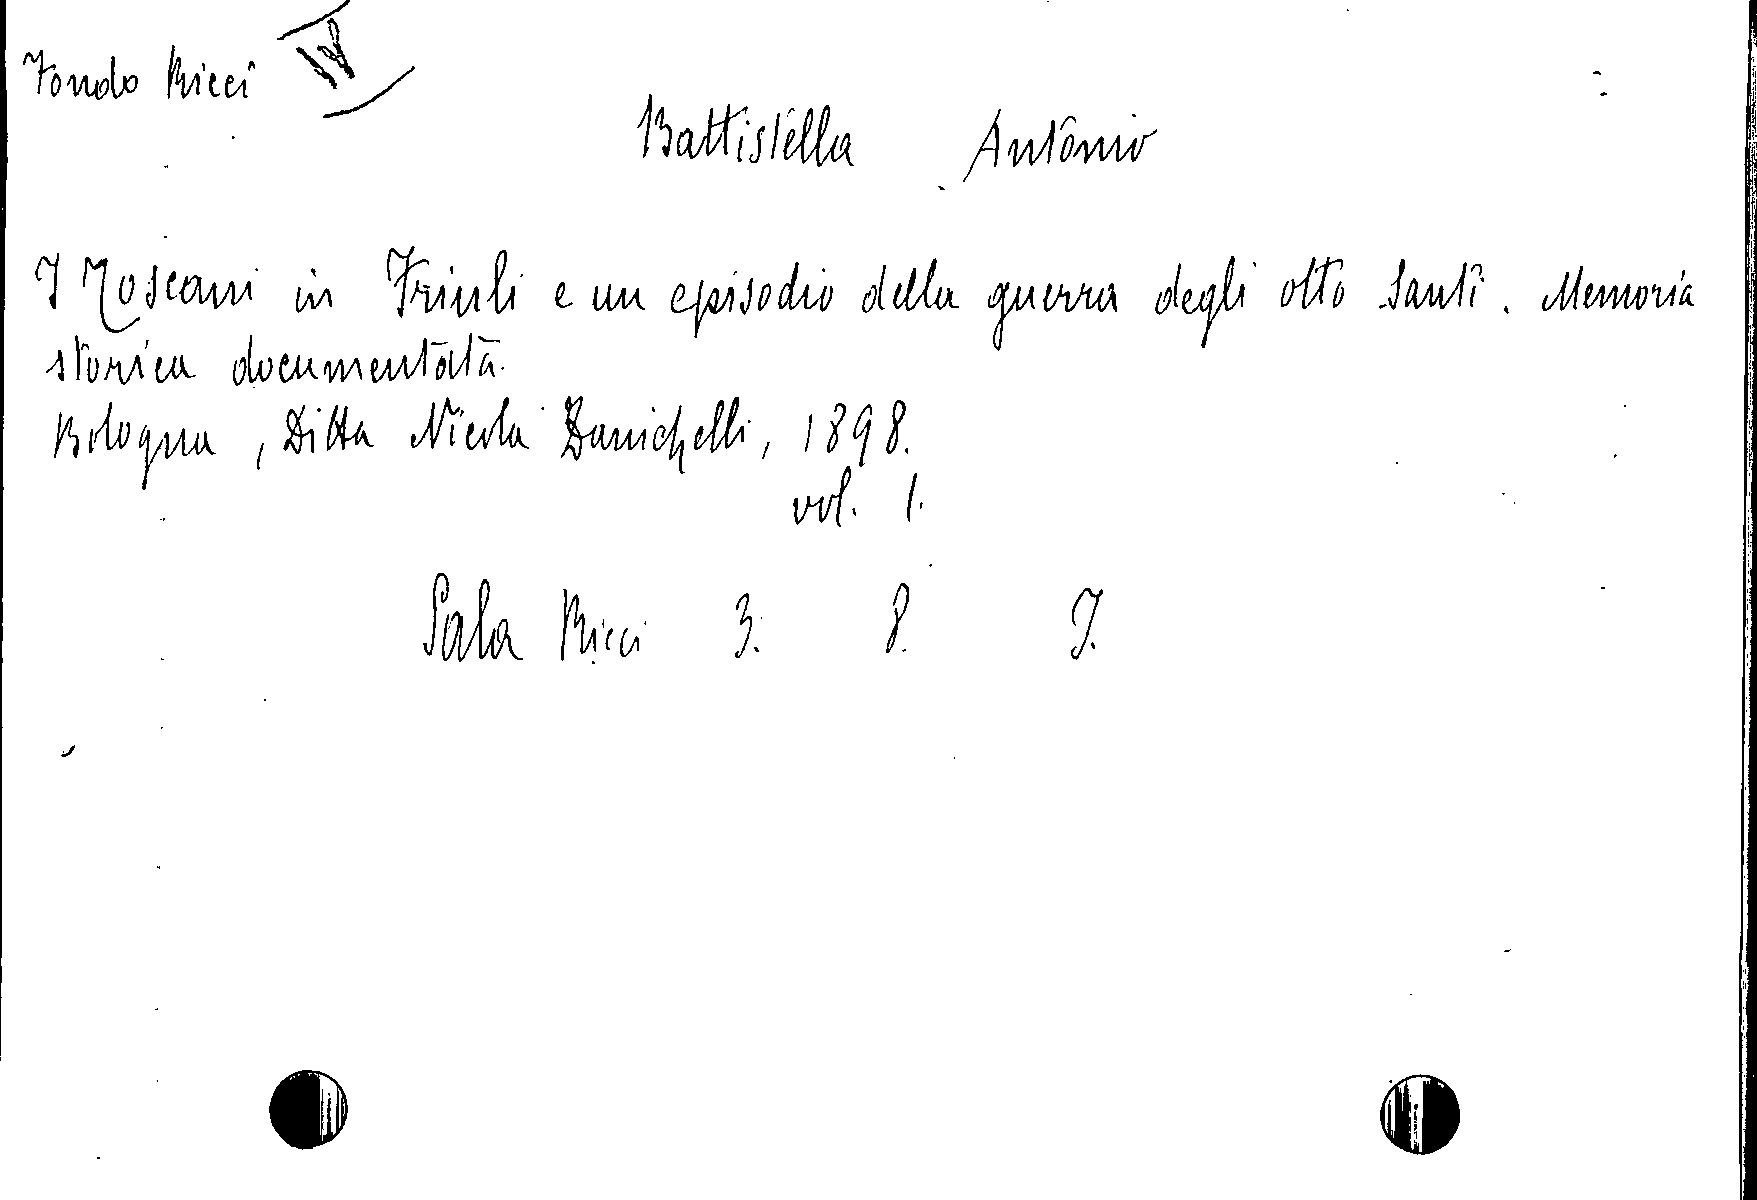 Fondo Ricci
Battistella Antonio
I Toscani in Friuli e un episodio della guerra degli otto Santi. Memoria
storica documentata.
Bologna, Ditta Nicola Zanichelli, 1898.
vol. 1.
Sala Ricci 3. 8. 7.